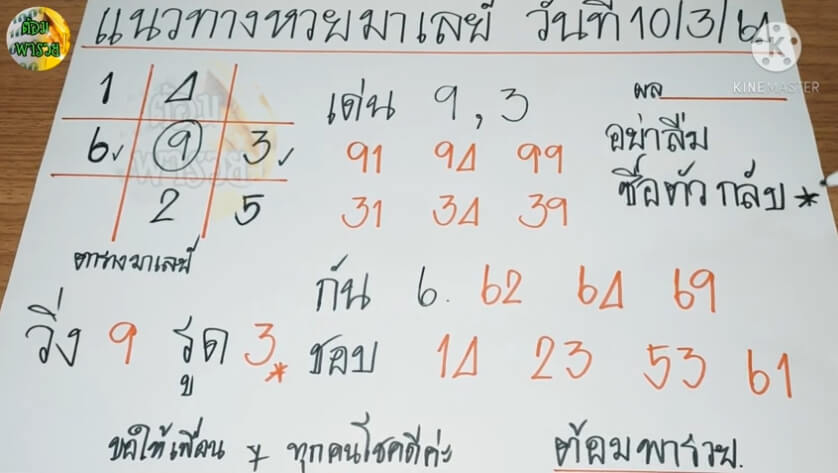 แนวทางหวยมาเลย์ วันที่ 10/3/64
ต้อม
พารวย
KINEMASTER
1 4
6 9 3
2 5
ตารางมาเลย์
เด่น 9, 3
91 94 99
31 34 39
ผล
อย่าลืม
ซื้อตัวกลับ *
กัน 6. 62 64 69
วิ่ง 9 รูด 3 *
ชอบ 14 23 53 61
ขอให้เพื่อน ๆ ทุกคนโชคดีค่ะ
ต้อมพารวย.